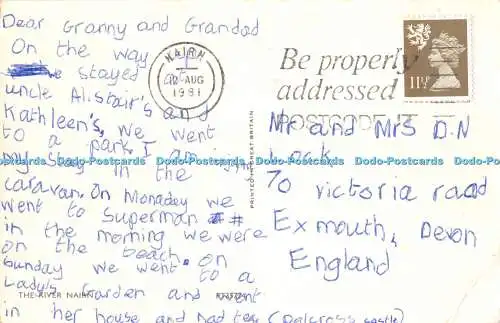 Dear Granny and Grandad
On the way
we stayed at
uncle Alistair's and
Kathleen's, we went
to a park. I am
my stay in the
caravan. On Monaday we
went to Superman II
in the morning we were
on the beach. On
Sunday we went to a
Lady's Garden and
in her house and had tea (Dalcross castle)
THE RIVER NAIRN
PRINTED IN GREAT BRITAIN
NAIRN
12 AUG
1981
Be properly
addressed
POSTCODE IT
11½P
Mr and Mrs D.N
Lock
70 victoria road
Exmouth, Devon
England
Dodo-Postcards Dodo-Postcards Dodo-Postcards Dodo-Postcards Dodo-Postcards